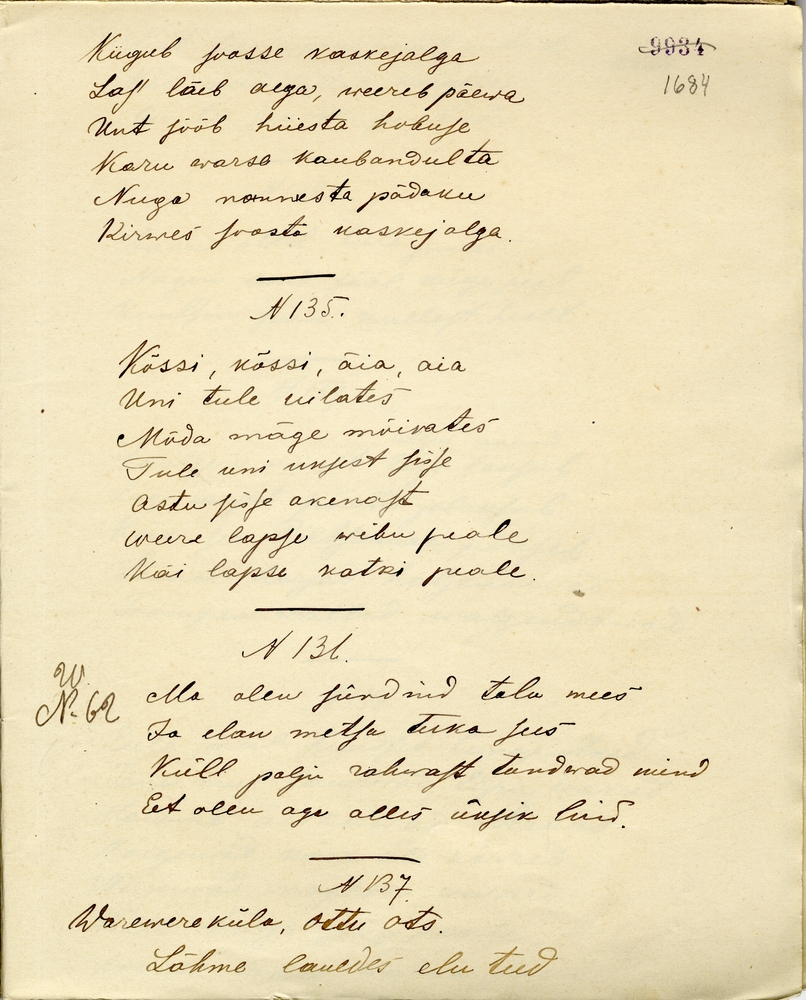 9934
1684
Kiigub soosse kaskejalga
Las' läeb aega, weereb päewa
Unt sööb hiiesta hobuse
Karu warsa kaubandulta
Nuga nonnesta pädaku
Kirwes soosta kaskejalga.
N 135.
Kõssi, kõssi, äia, äia
Uni tule uilates
Mõda mäge mõirates
Tule uni uksest sisse
Astu sisse akenast
weere lapse wibu peale
Käi lapse katki peale.
N 136.
W.
N. 62
Ma olen sündind talu mees
Ja elan metsa tuka sees
Küll palju rahwast tundwad mind
Et olen aga alles üksik lind.
N 137.
Warewere küla, Ottu Ots.
Lähme lauldes elu teed